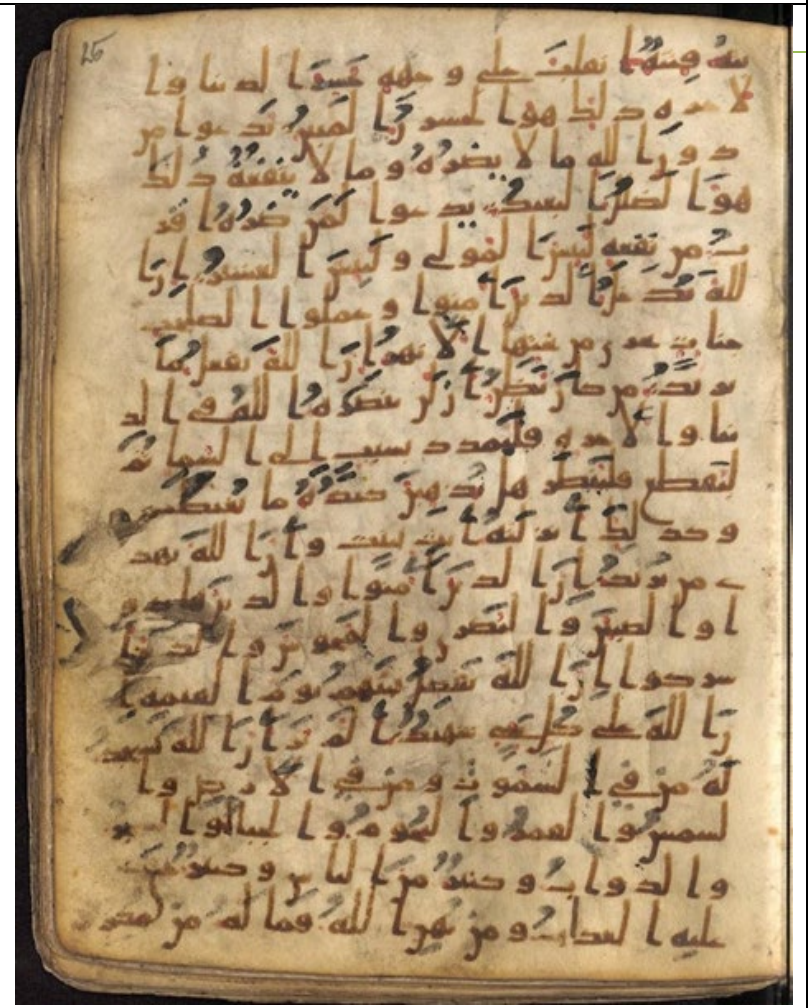 25
بته فتنة انقلب على وجهه خسر الدنيا وا
لاخرة ذلك هو الخسرن المبين يدعوا من
دون الله ما لا يضره وما لا ينفعه ذلك
هو الضلل البعيد يدعوا لمن ضره اقر
ب من نفعه لبيس المولى ولبيس العشير ان
الله يدخل الذين امنوا وعملوا الصلحت
جنات تجري من تحتها الانهر ان الله يفعل ما
يريد من كان يظن ان لن ينصره الله في الد
نيا والاخرة فليمدد بسبب الى السما ثم
ليقطع فلينظر هل يذهبن كيده ما يغيظ
وكذلك انزلنه ايت بينت وان الله يهد
ي من يريد ان الذين امنوا والذين هادو
ا والصبين والنصرى والمجوس والذين
اشركوا ان الله يفصل بينهم يوم القيمة ا
ن الله على كل شي شهيد الم تر ان الله يسجد
له من في السموت ومن في الارض وا
لشمس والقمر والنجوم والجبال والشجر
والدواب وكثير من الناس وكثير حق
عليه العذاب ومن يهن الله فما له من مكر